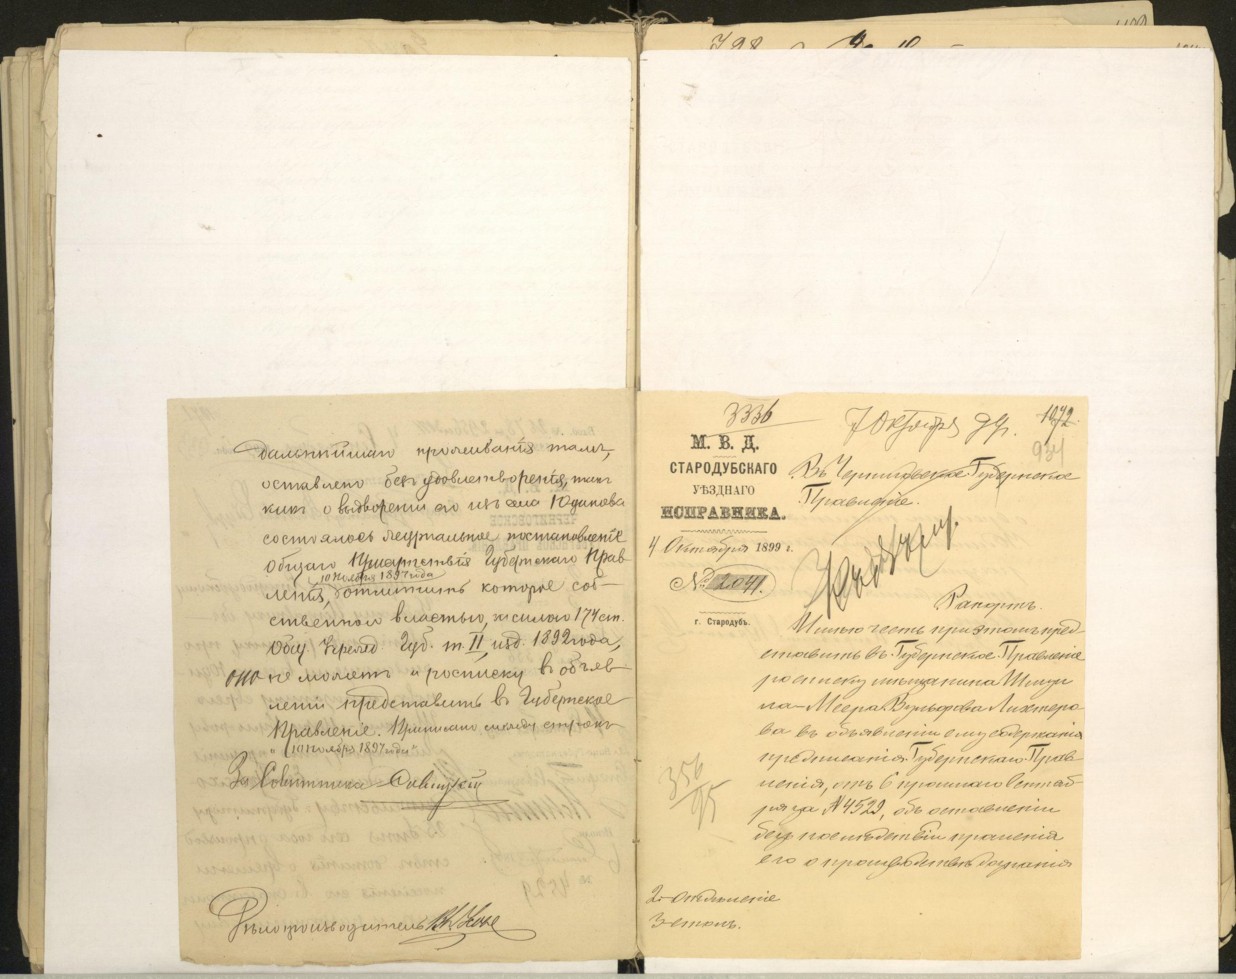 дальнѣйшаго проживанія тамъ,
оставлено безъ удовлетворенія, такъ
какъ о выдвореніи его изъ села Юдиново
состоялось журнальное постановленіе
Общаго Присутствія Губернскаго Прав-
10 Ноября 1897 года
ленія, отмѣнить которое соб-
ственною властью, въ силу 174 ст.
Общ. Учрежд. Губ. т. II, изд. 1892 года,
оно не можетъ и росписку въ объяв-
леніи представить въ Губернское
Правленіе. Приписано между строкъ
"10 Ноября 1897 года"
За Совѣтника
Дѣлопроизводитель
3336
7 Октября 99.
1072.
934
М. В. Д.
СТАРОДУБСКАГО
УѢЗДНАГО
ИСПРАВНИКА.
4 Октября 1899 г.
№ 2041.
г. Стародубъ.
Въ Черниговское Губернское
Правленіе.
Рапортъ.
Имѣю честь при этомъ пред-
ставить въ Губернское Правленіе
росписку мѣщанина Шмуи-
ла-Меера Вульфова Лихтеро-
ва въ объявленіи ему содержанія
предписанія Губернскаго Прав-
ленія, отъ 6 прошлаго Сентяб-
ря за № 4522, объ оставленіи
безъ послѣдствій прошенія
его о производствѣ дознанія
356/95
2 отдѣленіе
3 столъ.